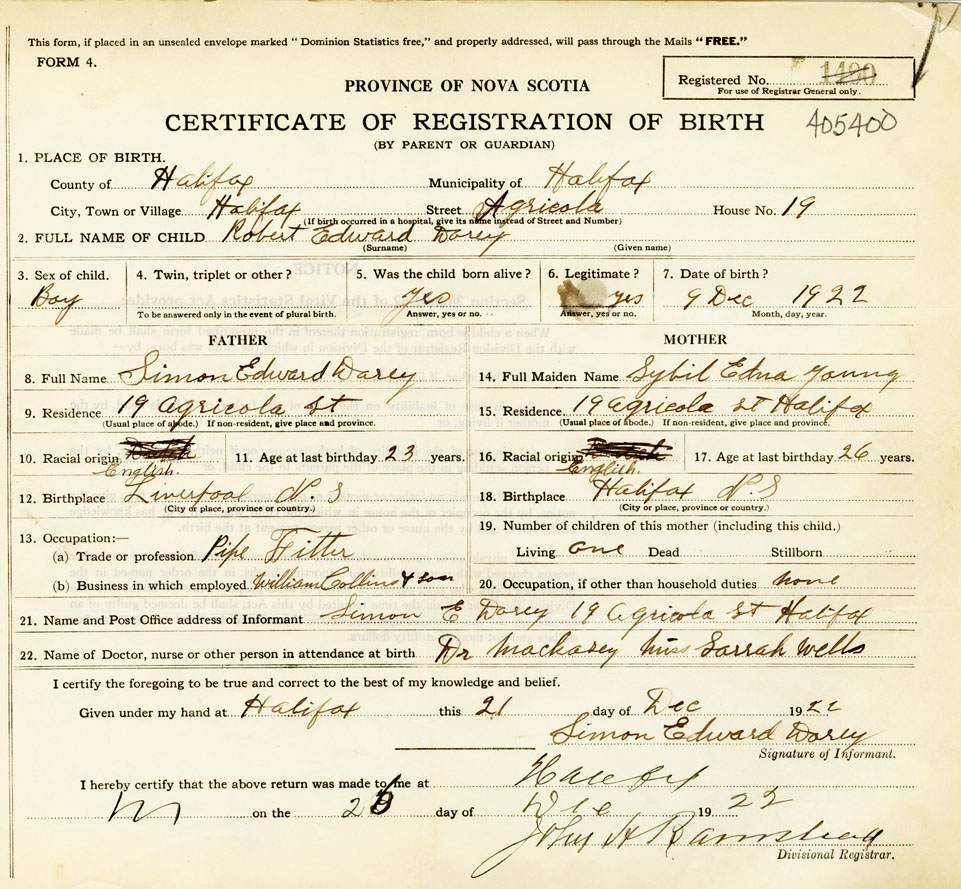 This form, if placed in an unsealed envelope marked "Dominion Statistics free," and properly addressed, will pass through the Mails "FREE."
FORM 4.
Registered No. 1490
For use of Registrar General only.
PROVINCE OF NOVA SCOTIA
CERTIFICATE OF REGISTRATION OF BIRTH 405400
(BY PARENT OR GUARDIAN)
1. PLACE OF BIRTH.
County of Halifax Municipality of Halifax
City, Town or Village Halifax Street Agricola House No. 19
(If birth occurred in a hospital, give its name instead of Street and Number)
2. FULL NAME OF CHILD Robert Edward Dorey
(Surname) (Given name)
3. Sex of child. 4. Twin, triplet or other? 5. Was the child born alive? 6. Legitimate? 7. Date of birth?
Boy yes yes 9 Dec 1922
To be answered only in the event of plural birth. Answer, yes or no. Answer, yes or no. Month, day, year.
FATHER MOTHER
8. Full Name Simon Edward Dorey 14. Full Maiden Name Sybil Edna Young
9. Residence 19 Agricola St 15. Residence. 19 Agricola St Halifax
(Usual place of abode.) If non-resident, give place and province. (Usual place of abode.) If non-resident, give place and province.
10. Racial origin 11. Age at last birthday 23 years. 16. Racial origin 17. Age at last birthday 26 years.
English. English.
12. Birthplace Liverpool N.S 18. Birthplace Halifax N.S
(City or place, province or country.) (City or place, province or country.)
19. Number of children of this mother (including this child.)
13. Occupation:—
(a) Trade or profession Pipe Fitter Living one Dead Stillborn
(b) Business in which employed William Collins & son 20. Occupation, if other than household duties none
21. Name and Post Office address of Informant Simon E Dorey 19 Agricola St Halifax
22. Name of Doctor, nurse or other person in attendance at birth Dr Mackasey Miss Sarrah Wells
I certify the foregoing to be true and correct to the best of my knowledge and belief.
Given under my hand at Halifax this 21 day of Dec 1922
Simon Edward Dorey
Signature of Informant.
I hereby certify that the above return was made to me at Halifax
on the day of Dec 1922
John H
Divisional Registrar.